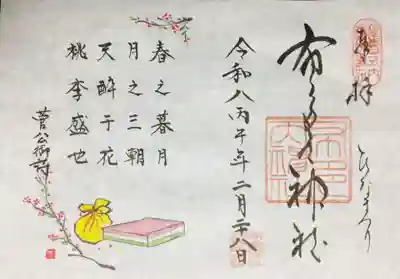 奉拝
ひなまつり
布多天神社
令和八丙午年二月二十八日
春之暮月
月之三朝
天酔于花
桃李盛也
菅公御詩